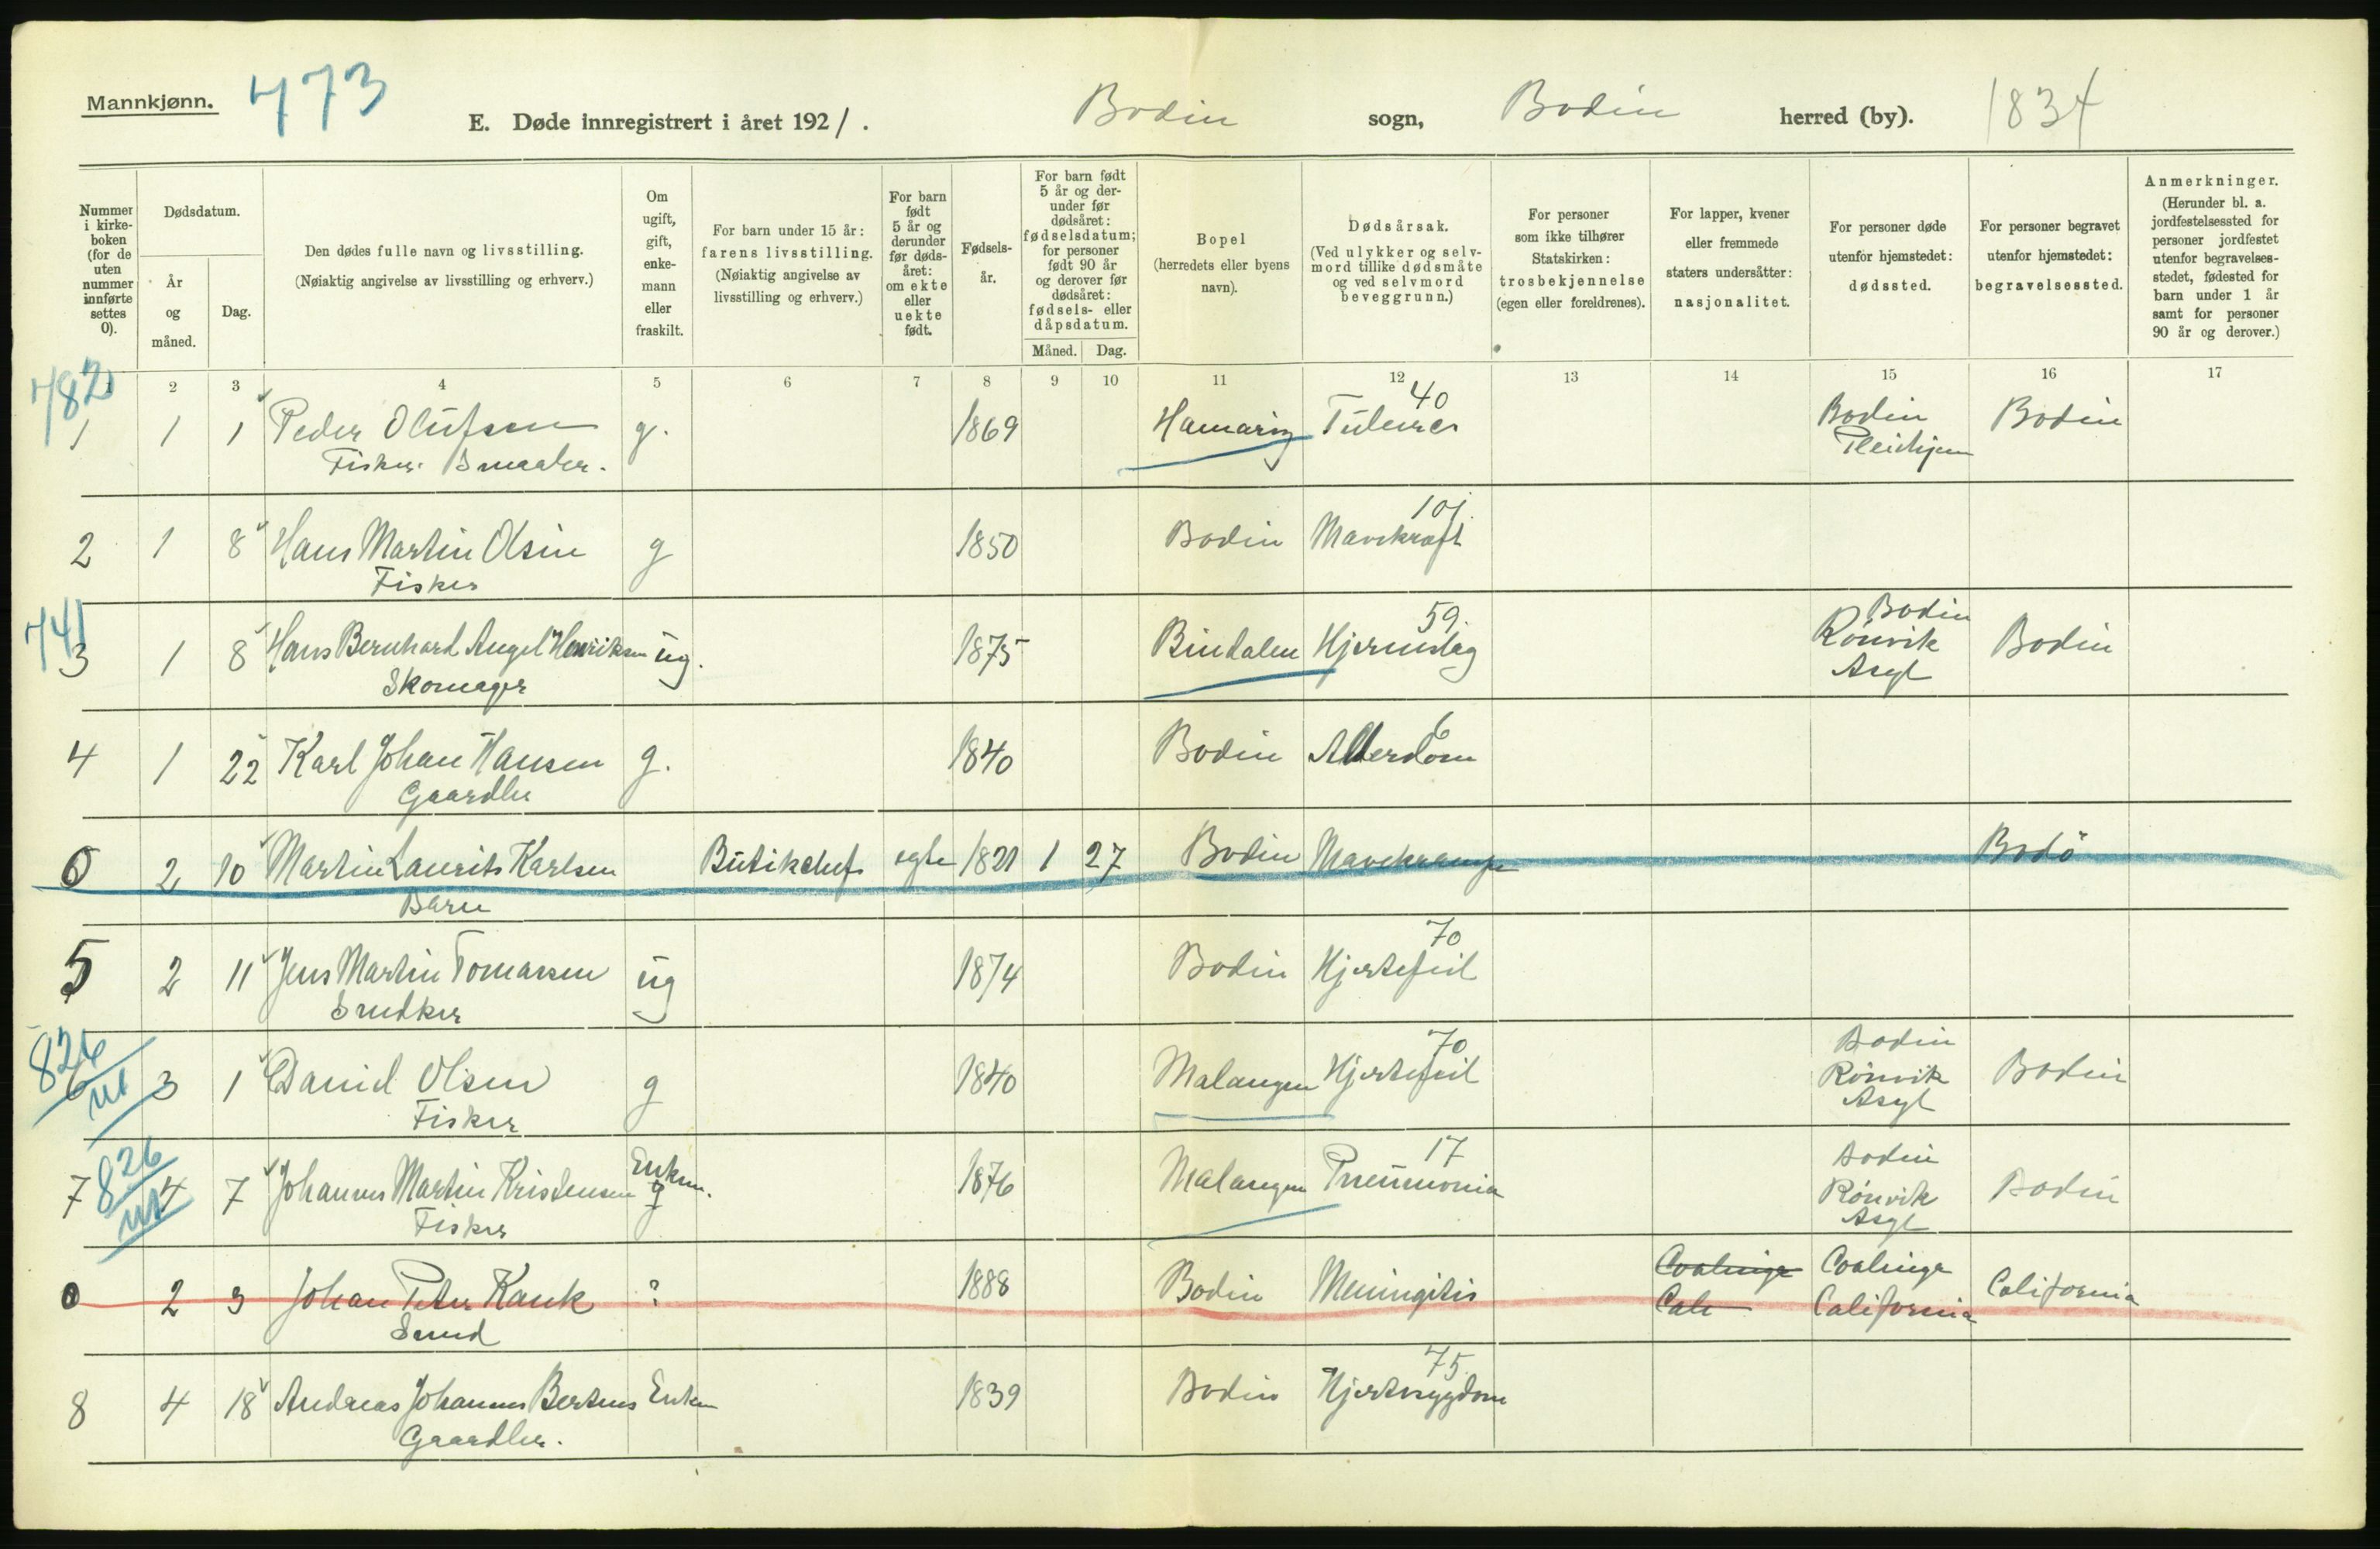 Mannkjønn.
473
E. Døde innregistrert i året 1921.
Bodin sogn, Bodin herred (by).
1834
Nummer i kirkeboken (for de uten nummer innførte settes 0).
Dødsdatum.
År og måned.
Dag.
Den dødes fulle navn og livsstilling.
(Nøiaktig angivelse av livsstilling og erhverv.)
Om ugift, gift, enkemann eller fraskilt.
For barn under 15 år: farens livsstilling.
(Nøiaktig angivelse av livsstilling og erhverv.)
For barn født 5 år og derunder før dødsåret: om ekte eller uekte født.
Fødselsår.
For barn født 5 år og derunder før dødsåret: fødselsdatum; for personer født 90 år og derover før dødsåret: fødsels- eller dåpsdatum.
Måned. Dag.
Bopel
(herredets eller byens navn).
Dødsårsak.
(Ved ulykker og selvmord tillike dødsmåte og ved selvmord beveggrunn.)
For personer som ikke tilhører Statskirken: trosbekjennelse
(egen eller foreldrenes).
For lapper, kvener eller fremmede staters undersåtter: nasjonalitet.
For personer døde utenfor hjemstedet: dødssted.
For personer begravet utenfor hjemstedet: begravelsessted.
Anmerkninger.
(Herunder bl. a. jordfestelsessted for personer jordfestet utenfor begravelsesstedet, fødested for barn under 1 år samt for personer 90 år og derover.)
1 2 3 4 5 6 7 8 9 10 11 12 13 14 15 16 17
782
40
1 1 1 Peder Olufsen g. 1869 Hamarøy Bodin Bodin
Fisker
101.
2 1 8 Hans Martin Olsen g 1850 Bodin Mavekræft
Fisker
741
59.
Bodin
3 1 8 Hans Bernhard Angel Henriksen ug. 1875 Bindalen Hjerneslag Rönvik Bodin
Skomager Asyl
6
4 1 22 Karl Johan Hansen g. 1840 Bodin Alderdom
Gaardbr
0 2 10 Martin Laurits Karlsen Butikchef egte 1821 1 27 Bodin Mavekrampe Bodö
Barn
70
5 2 11 Jens Martin Tomassen ug 1874 Bodin Hjertefeil
Snedker
826
70
Bodin
6 3 1 Daniel Olsen g 1840 Malangen Hjertefeil Rönvik Bodin
Fisker Asyl
826
17
Bodin
7 4 7 Johannes Martin Kristensen Enkem. g 1876 Malangen Pneumonia Rönvik Bodin
Fisker Asyl
0 2 3 Johan Peter Kank ? 1888 Bodin Meningitis Coalinga Coalinga California
Cale California
75.
8 4 18 Andreas Johannes Bertens Enkem 1839 Bodin Hjertesygdom
Gaardbr.